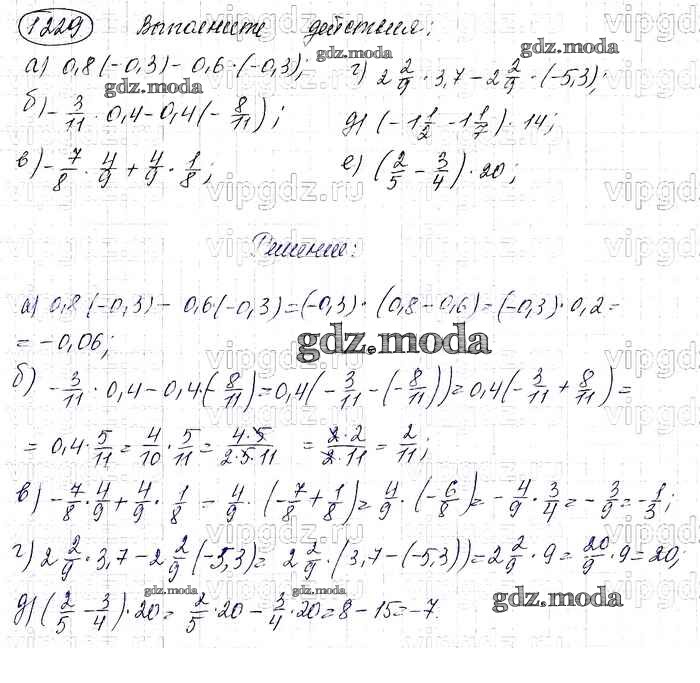 1229 Выполните действия:
а) 0,8(-0,3) - 0,6·(-0,3); г) 2 2/9 · 3,7 - 2 2/9 · (-5,3);
б) -3/11 · 0,4 - 0,4(-8/11); д) (-1 1/2 - 1 1/7) · 14;
в) -7/8 · 4/9 + 4/9 · 1/8; е) (2/5 - 3/4) · 20;
Решение:
а) 0,8(-0,3) - 0,6(-0,3) = (-0,3)·(0,8 - 0,6) = (-0,3)·0,2 =
= -0,06;
б) -3/11 · 0,4 - 0,4·(-8/11) = 0,4(-3/11 - (-8/11)) = 0,4(-3/11 + 8/11) =
= 0,4·5/11 = 4/10 · 5/11 = 4·5/2·5·11 = 2·2/2·11 = 2/11;
в) -7/8 · 4/9 + 4/9 · 1/8 = 4/9 · (-7/8 + 1/8) = 4/9 · (-6/8) = -4/9 · 3/4 = -3/9 = -1/3;
г) 2 2/9 · 3,7 - 2 2/9 (-5,3) = 2 2/9 · (3,7 - (-5,3)) = 2 2/9 · 9 = 20/9 · 9 = 20;
д) (2/5 - 3/4) · 20 = 2/5 · 20 - 3/4 · 20 = 8 - 15 = -7.
gdz.moda
vipgdz.ru